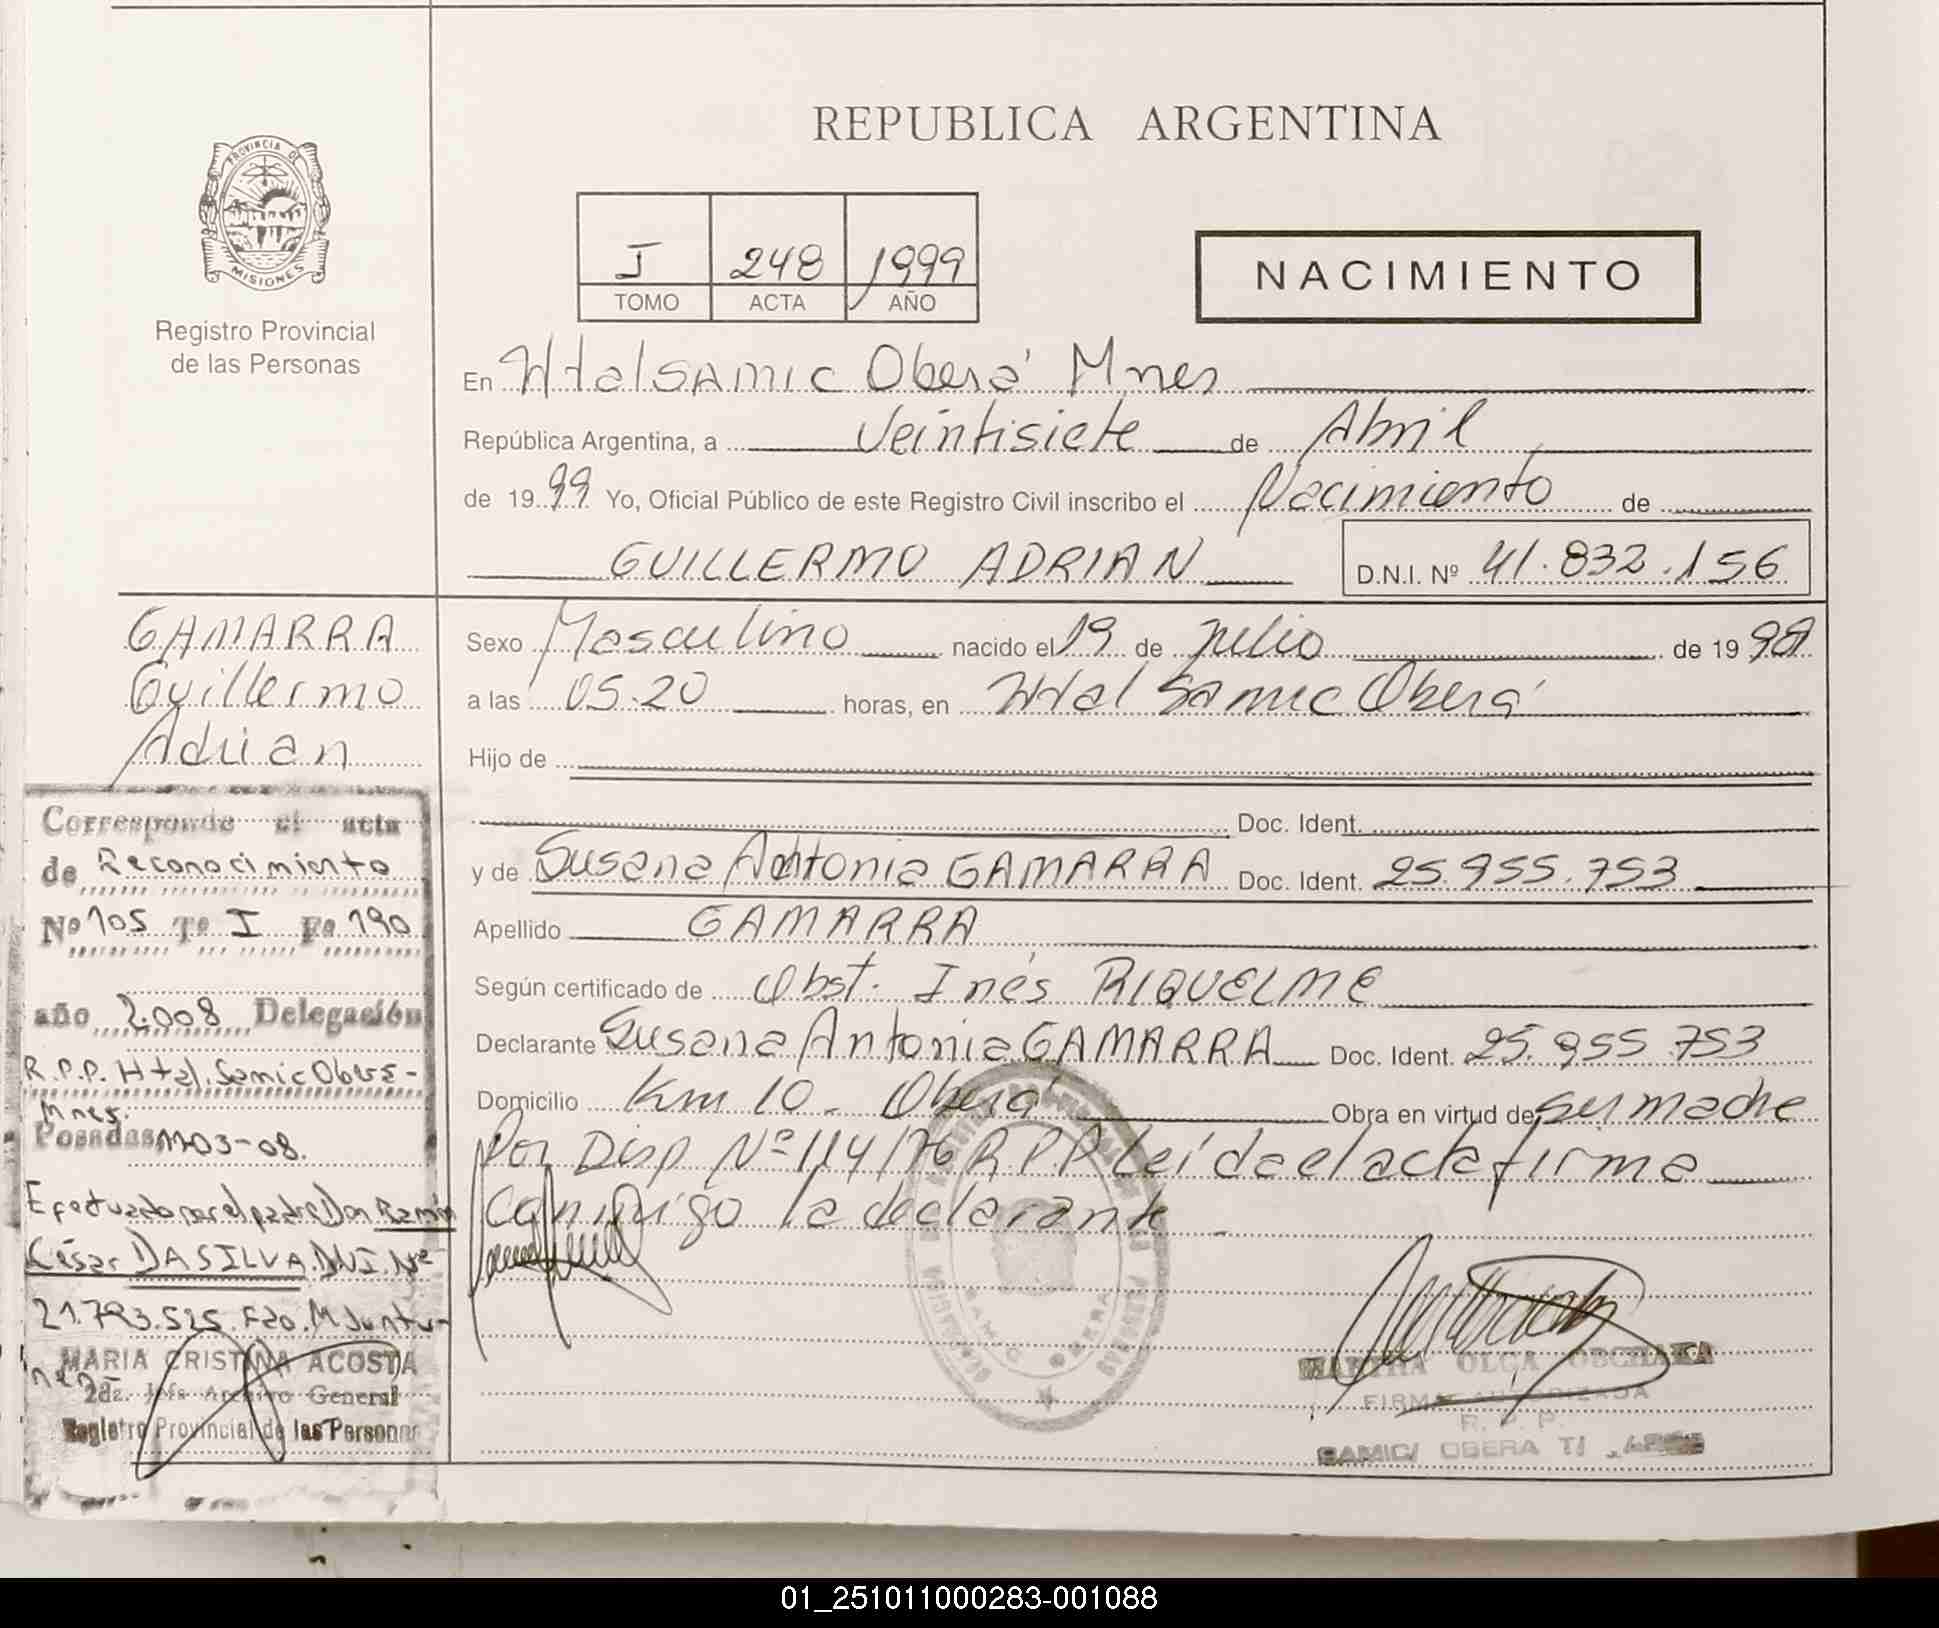 REPUBLICA ARGENTINA
PROVINCIA DE
MISIONES
Registro Provincial
de las Personas
I 248 1999
TOMO ACTA AÑO
NACIMIENTO
En Htal SAMIC Oberá Mnes
República Argentina, a Veintisiete de Abril
de 1999 Yo, Oficial Público de este Registro Civil inscribo el Nacimiento de
GUILLERMO ADRIAN D.N.I. Nº 41.832.156
GAMARRA
Guillermo
Adrian
Sexo Masculino nacido el 19 de Julio de 1998
a las 05.20 horas, en Htal Samic Oberá
Hijo de
Doc. Ident.
y de Susana Antonia GAMARRA Doc. Ident. 25.955.753
Apellido GAMARRA
Según certificado de Obst. Inés RIQUELME
Declarante Susana Antonia GAMARRA Doc. Ident. 25.955.753
Domicilio Km 10 - Oberá Obra en virtud de ser madre
Por Disp. Nº 114/76 R.P.P Leída el acta firma
conmigo la declarante
Corresponde el acta
de Reconocimiento
Nº 105 Tº I Fº 190
año 2.008 Delegación
R.P.P. Htal. Samic Oberá-
Mnes.
Posadas 11-03-08.
Efectuado por el padre Don Ramón
César DA SILVA DNI. Nº
21.793.525. Fdo.
MARIA CRISTINA ACOSTA
2da. Jefe Archivo General
Registro Provincial de las Personas
MARTHA OLGA
FIRMA AUTORIZADA
R. P. P.
SAMIC/ OBERA
01_251011000283-001088